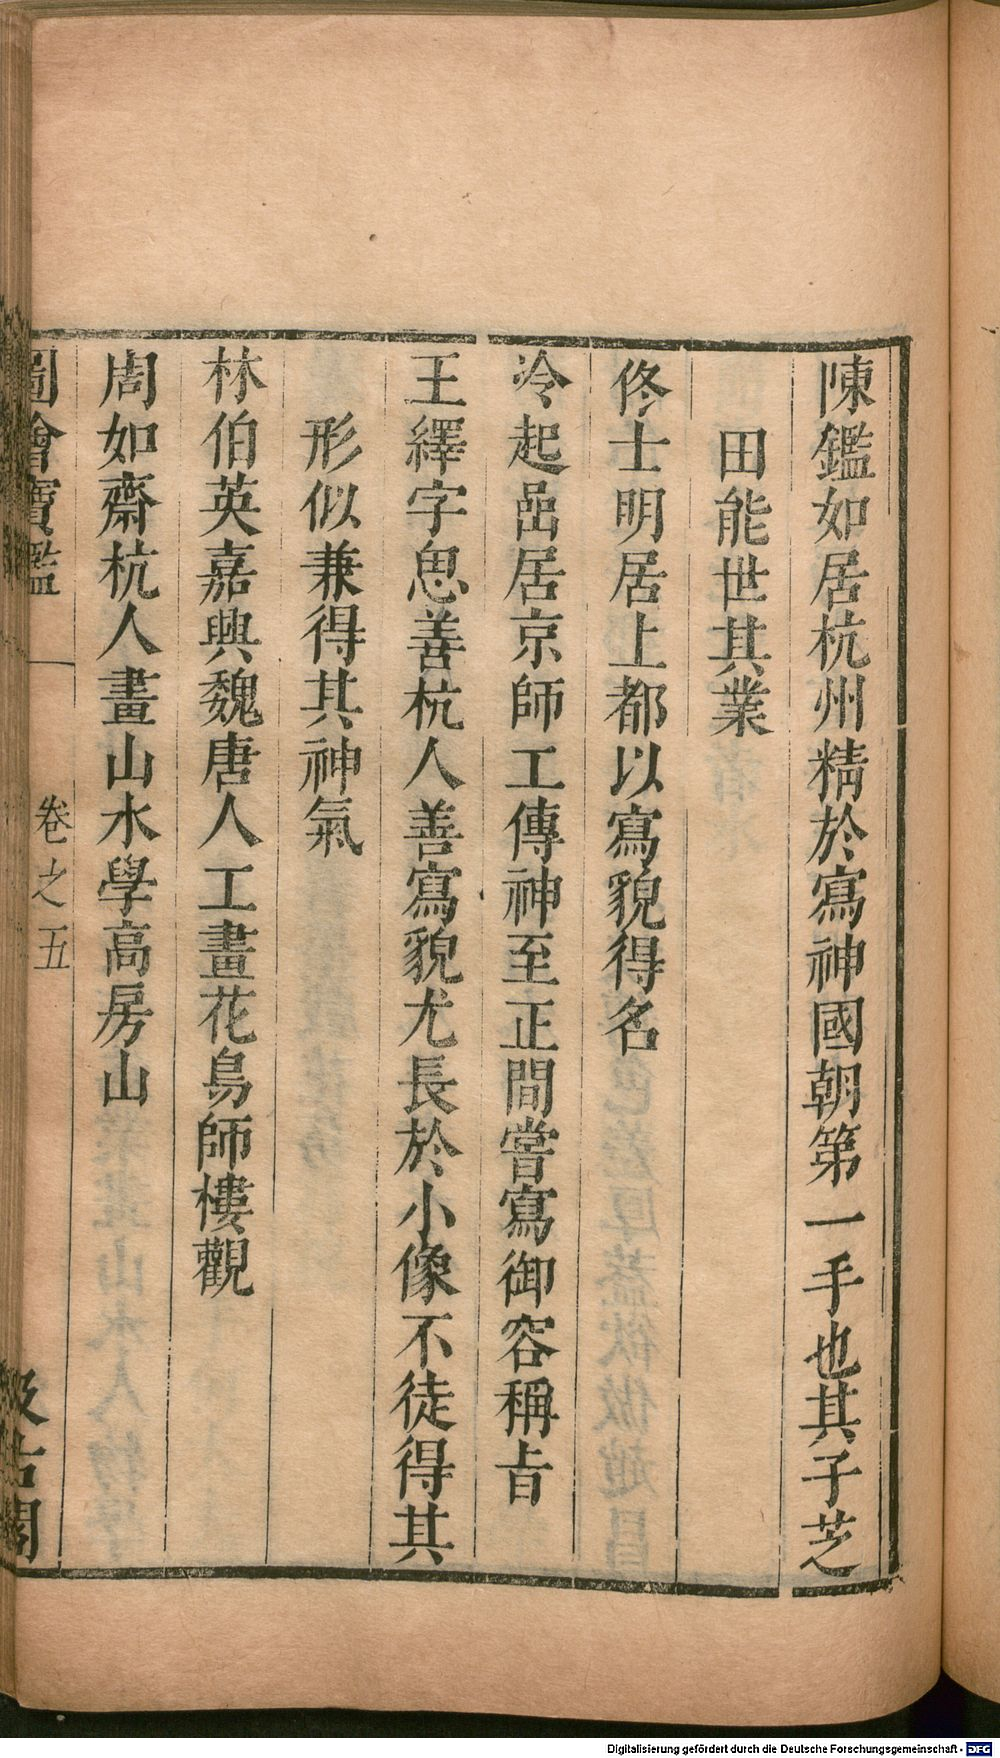 陳鑑如居杭州精於寫神國朝第一手也其子芝
田能世其業
佟士明居上都以寫貌得名
冷起嵒居京師工傳神至正間嘗寫御容稱旨
王繹字思善杭人善寫貌尤長於小像不徒得其
形似兼得其神氣
林伯英嘉興魏唐人工畫花鳥師樓觀
周如齋杭人畫山水學高房山
圖繪寶鑑 卷之五 汲古閣
Digitalisierung gefördert durch die Deutsche Forschungsgemeinschaft - DFG